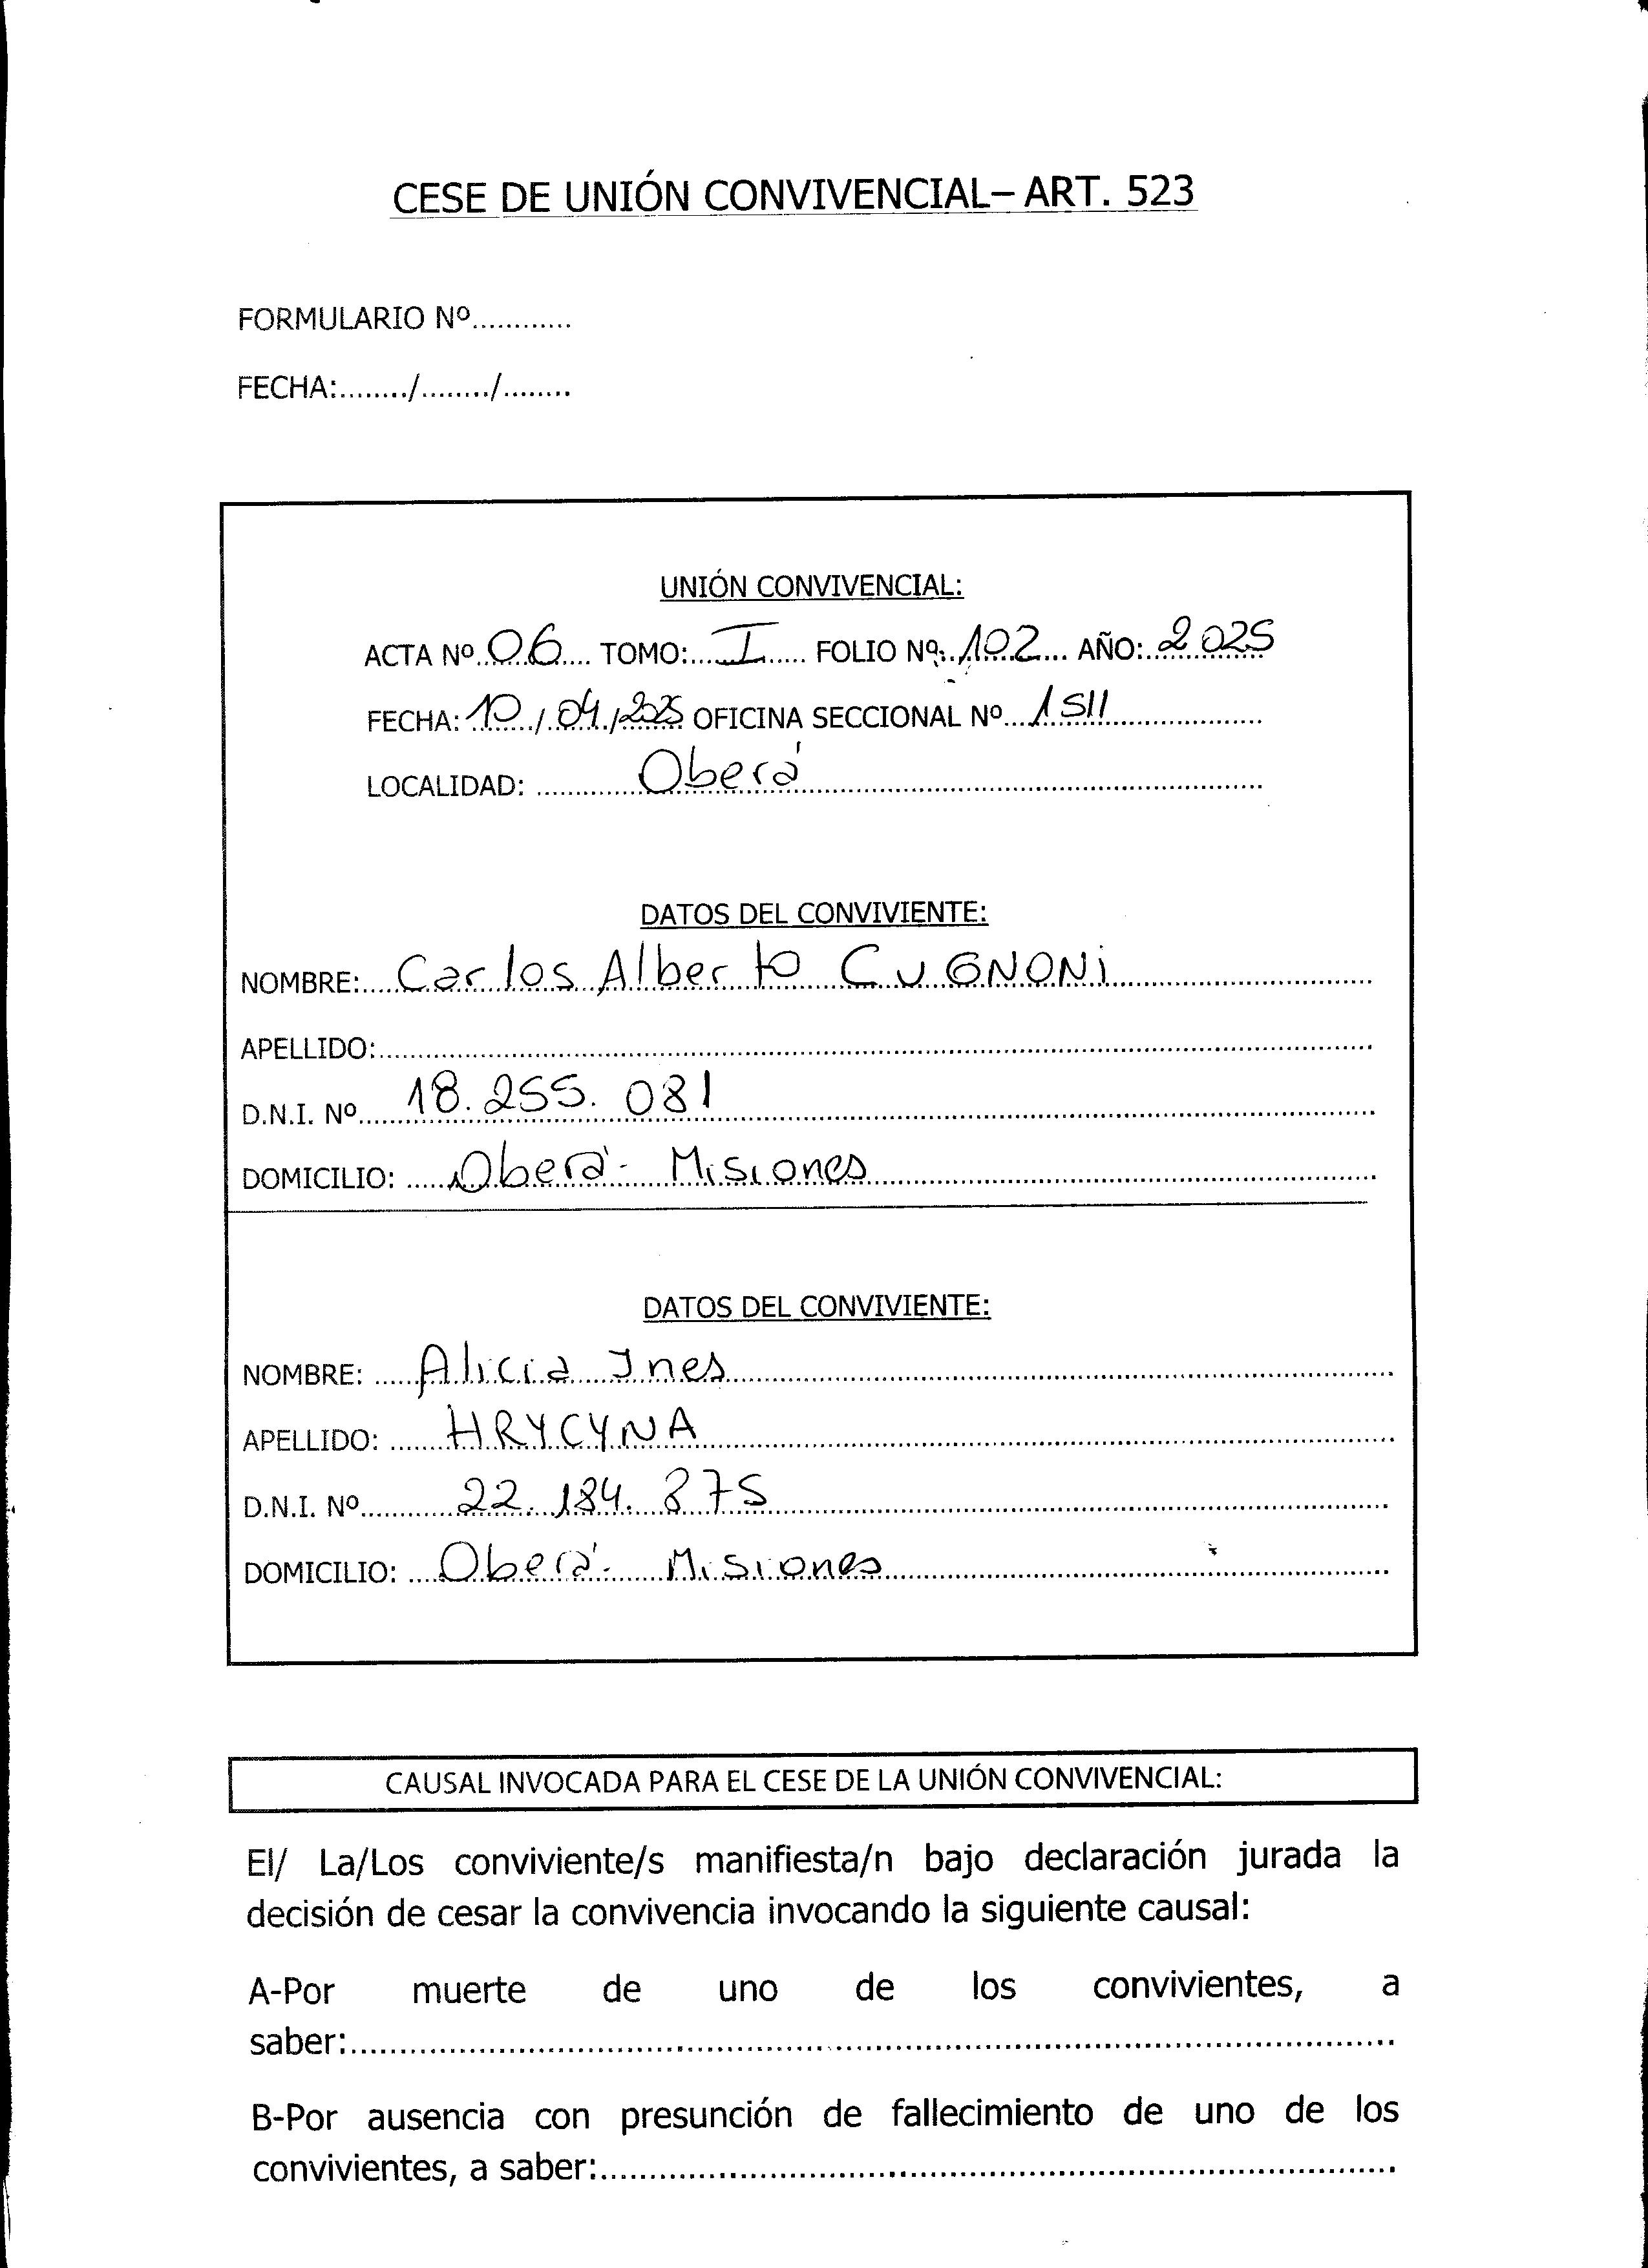 CESE DE UNIÓN CONVIVENCIAL– ART. 523
FORMULARIO Nº............
FECHA:......../......../........
UNIÓN CONVIVENCIAL:
ACTA Nº 06 TOMO: I FOLIO Nº: 102 AÑO: 2025
FECHA: 10/04/2025 OFICINA SECCIONAL Nº 1511
LOCALIDAD: Oberá
DATOS DEL CONVIVIENTE:
NOMBRE: Carlos Alberto CUGNONi
APELLIDO:
D.N.I. Nº 18.255.081
DOMICILIO: Oberá - Misiones
DATOS DEL CONVIVIENTE:
NOMBRE: Alicia Ines
APELLIDO: HRYCYNA
D.N.I. Nº 22.184.875
DOMICILIO: Oberá - Misiones
CAUSAL INVOCADA PARA EL CESE DE LA UNIÓN CONVIVENCIAL:
El/ La/Los conviviente/s manifiesta/n bajo declaración jurada la
decisión de cesar la convivencia invocando la siguiente causal:
A-Por muerte de uno de los convivientes, a
saber:
B-Por ausencia con presunción de fallecimiento de uno de los
convivientes, a saber: